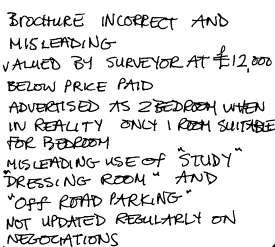 BROCHURE INCORRECT AND
MISLEADING
VALUED BY SURVEYOR AT £12,000
BELOW PRICE PAID
ADVERTISED AS 2 BEDROOM WHEN
IN REALITY ONLY 1 ROOM SUITABLE
FOR BEDROOM
MISLEADING USE OF "STUDY"
"DRESSING ROOM" AND
"OFF ROAD PARKING"
NOT UPDATED REGULARLY ON
NEGOCIATIONS